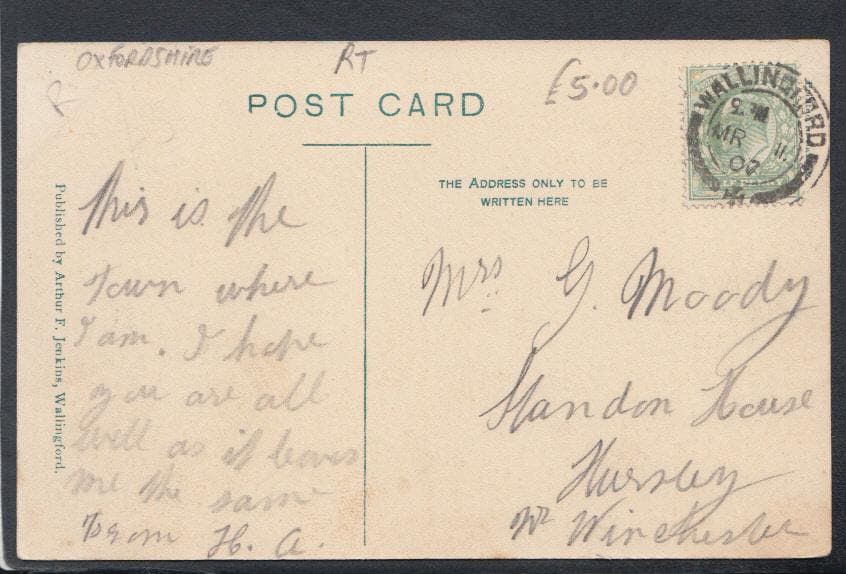 OXFORDSHIRE
RT
£5.00
POST CARD
THE ADDRESS ONLY TO BE
WRITTEN HERE
WALLINGFORD
MR 11
07
Published by Arthur F. Jenkins, Wallingford.
This is the
Town where
I am. I hope
you are all
well as it leaves
me the same
From H. A.
Mrs G. Moody
Standon House
Hursley
Nr Winchester